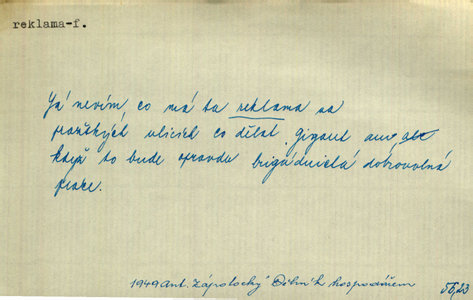 reklama-f.
Já nevím co má ta reklama na
pražských ulicích co dělat.
když to bude opravdu brigádnická dobrovolná
práce.
1949 Ant. Zápotocký Dělník hospodářem